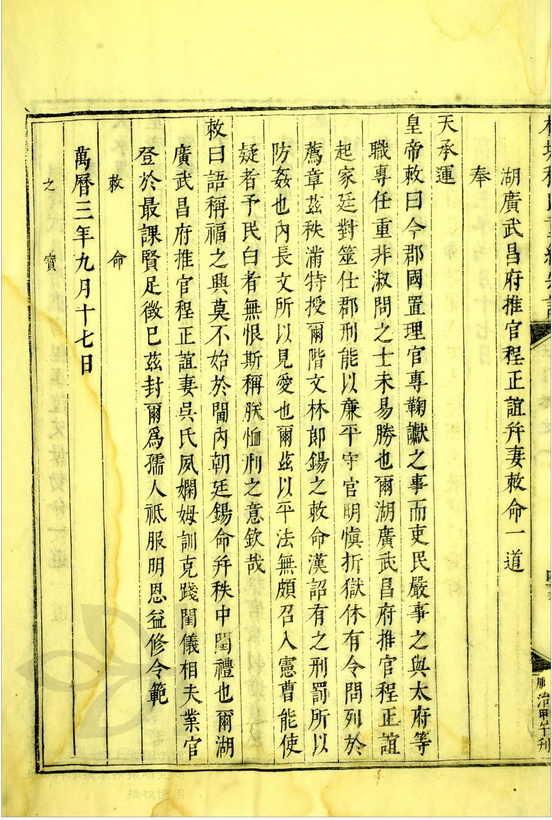 湖廣武昌府推官程正誼并妻敕命一道
奉
天承運
皇帝敕曰今郡國置理官專鞠讞之事而吏民嚴事之與太府等
職專任重非淑問之士未易勝也爾湖廣武昌府推官程正誼
起家廷對筮仕郡刑能以亷平守官明慎折獄休有令問列於
薦章茲秩滿特授爾階文林郎錫之敕命漢詔有之刑罰所以
防姦也內長文所以見愛也爾茲以平法無頗召入憲曹能使
疑者予民白者無恨斯稱朕恤刑之意欽哉
敕曰語稱福之興莫不始於閫內朝廷錫命并秩中閨禮也爾湖
廣武昌府推官程正誼妻吳氏夙嫻姆訓克踐閨儀相夫業官
登於最課賢足徵巳茲封爾爲孺人祗服明恩益修令範
敕命
萬曆三年九月十七日
之寶
治甲午刊
授权使用